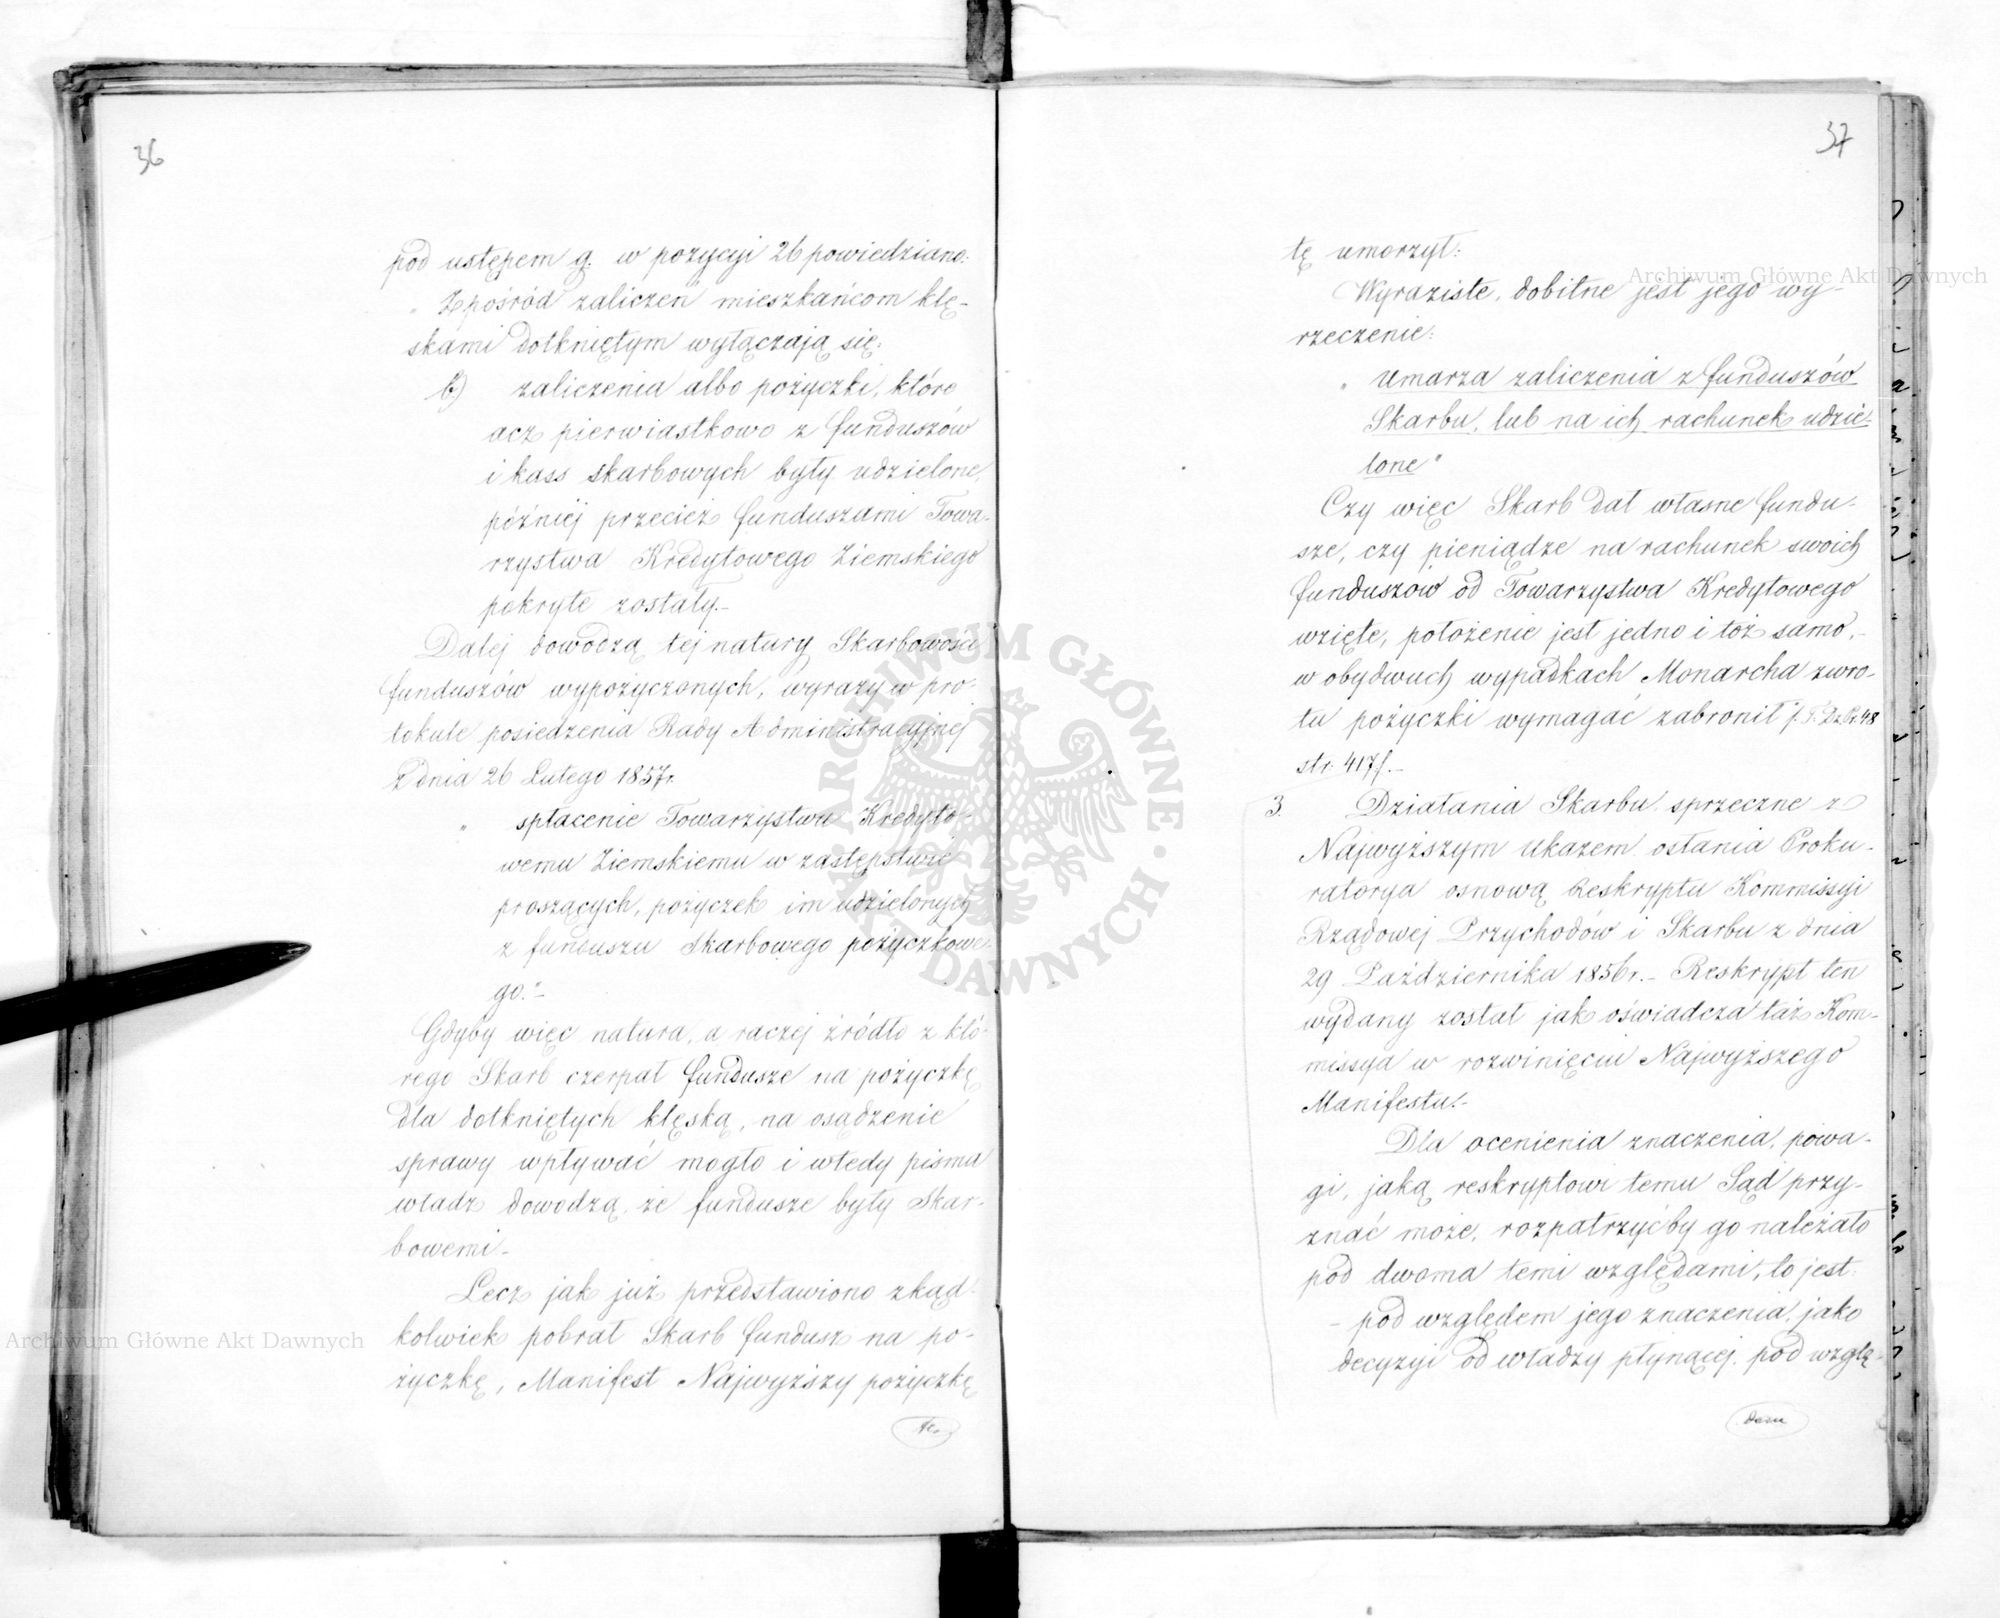 36
pod ustępem g. w pozycyi 26 powiedziano:
„Zpośród zaliczeń mieszkańcom klę-
skami dotkniętym wyłączają się:
b) zaliczenia albo pożyczki, które
acz pierwiastkowo z funduszów
i kass skarbowych były udzielone,
później przecież funduszami Towa-
rzystwa Kredytowego Ziemskiego
pokryte zostały.-
Dalej dowodzą tej natury Skarbowości
funduszów wypożyczonych, wyrazy w pro-
tokule posiedzenia Rady Administracyjnej
z dnia 26 Lutego 1857r.
„ spłacenie Towarzystwu Kredyto-
wemu Ziemskiemu w zastępstwie
proszących, pożyczek im udzielonych
z funduszu Skarbowego pożyczkowe-
go."-
Gdyby więc natura, a raczej źródło z któ-
rego Skarb czerpał fundusze na pożyczkę
dla dotkniętych klęską, na osądzenie
sprawy wpływać mogło i wtedy pisma
władz dowodzą, że fundusze były Skar-
bowemi-
Lecz jak już przedstawiono zkąd-
kolwiek pobrał Skarb fundusz na po-
życzkę, Manifest Najwyższy pożyczkę
37
tę umorzył:
Wyraziste, dobitne jest jego wy-
rzeczenie:
„ Umarza zaliczenia z funduszów
Skarbu, lub na ich rachunek udzie-
lone"
Czy więc Skarb dał własne fundu-
sze, czy pieniądze na rachunek swoich
funduszów od Towarzystwa Kredytowego
wzięte, położenie jest jedno i toż samo,-
w obydwuch wypadkach Monarcha zwro-
tu pożyczki wymagać zabronił /. T. Dz. Pr. 48
str. 417/.-
3. Działania Skarbu sprzeczne z
Najwyższym Ukazem osłania Proku-
ratorya osnową Reskryptu Kommissyi
Rządowej Przychodów i Skarbu z dnia
29 Października 1856r.- Reskrypt ten
wydany został jak oświadcza taż Kom-
missya w rozwinięciu Najwyższego
Manifestu.-
Dla ocenienia znaczenia, powa-
gi, jaką reskryptowi temu Sąd przy-
znać może, rozpatrzyćby go należało
pod dwoma temi względami, to jest:
- pod względem jego znaczenia, jako
decyzyi od władzy płynącej, pod wzglę-
dem
Archiwum Główne Akt Dawnych
Archiwum Główne Akt Dawnych
ARCHIWUM GŁÓWNE AKT DAWNYCH